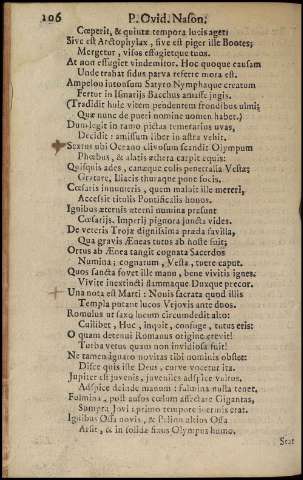 106 P. Ovid. Nason.
Cœperit, & quintæ tempora lucis aget:
Sive est Arctophylax, sive est piger ille Bootes;
Mergetur, visus effugietque tuos.
At non effugiet vindemitor. Hoc quoque causam
Unde trahat sidus parva referre mora est.
Ampelon intonsum Satyro Nymphaque creatum
Fertur in Ismariis Bacchus amasse jugis.
(Tradidit huic vitem pendentem frondibus ulmi;
Quæ nunc de pueri nomine nomen habet.)
Dum legit in ramo pictas temerarius uvas,
Decidit: amissum liber in astra vehit.
Sextus ubi Oceano clivosum scandit Olympum
Phœbus, & alatis æthera carpit equis:
Quisquis ades, canæque colis penetralia Vestæ;
Gratare, Iliacis thuraque pone focis.
Cæsaris innumeris, quem maluit ille mereri,
Accessit titulis Pontificalis honos.
Ignibus æternis æterni numina præsunt
Cæsaris. Imperii pignora juncta vides.
De veteris Trojæ dignissima præda favilla,
Qua gravis Æneas tutus ab hoste fuit;
Ortus ab Ænea tangit cognata Sacerdos
Numina: cognatum, Vesta, tuere caput.
Quos sancta fovet ille manu, bene vivitis ignes.
Vivite inextincti flammaque Duxque precor.
Una nota est Marti: Nonis sacrata quod illis
Templa putant lucos Vejovis ante duos.
Romulus ut saxo lucum circumdedit alto:
Cuilibet, Huc, inquit, confuge, tutus eris:
O quam detenui Romanus origine crevit!
Turba vetus quam non invidiosa fuit!
Ne tamen ignaro novitas tibi nominis obstet:
Disce quis iste Deus, curve vocetur ita.
Jupiter est juvenis, juveniles adspice vultus,
Adspice deinde manum: fulmina nulla tenet.
Fulmina, post ausos cœlum affectare Gigantas,
Sumpta Jovi: primo tempore inermis erat.
Ignibus Ossa novis, & Pelion altius Ossa
Arsit, & in solida fixus Olympus humo.
Stat